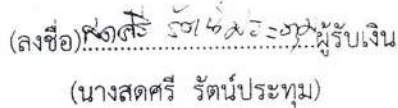 (ลงชื่อ) สดศรี รัตน์ประทุม ผู้รับเงิน
(นางสดศรี รัตน์ประทุม)